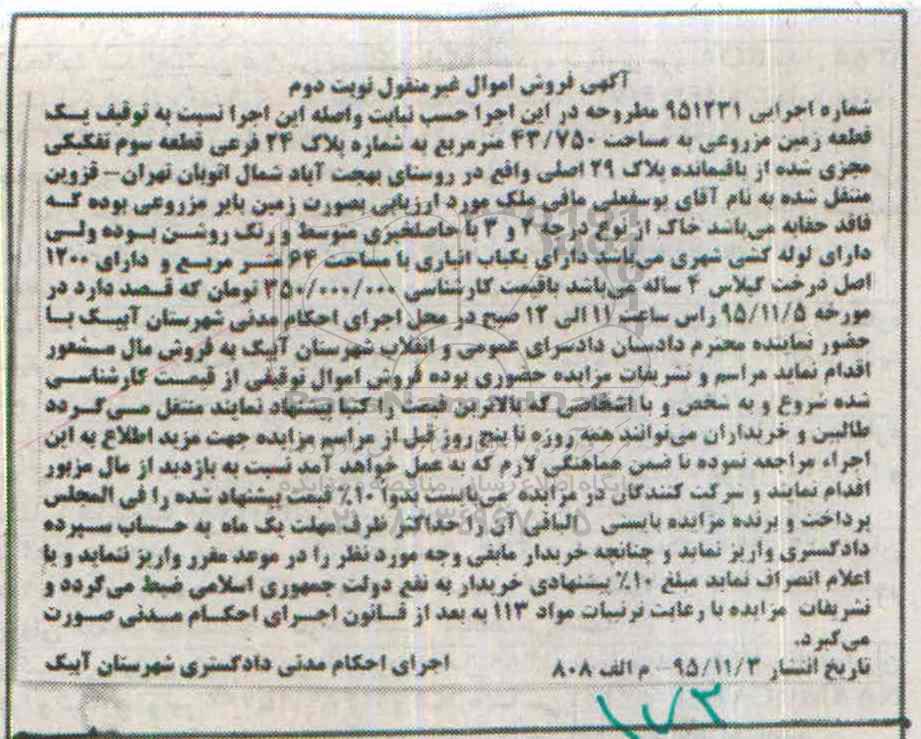 آگهی فروش اموال غیرمنقول نوبت دوم
شماره اجرایی ۹۵۱۲۳۱ مطروحه در این اجرا حسب نیابت واصله این اجرا نسبت به توقیف یک
قطعه زمین مزروعی به مساحت ۴۳/۷۵۰ مترمربع به شماره پلاک ۲۴ فرعی قطعه سوم تفکیکی
مجزی شده از باقیمانده پلاک ۲۹ اصلی واقع در روستای بهجت آباد شمال اتوبان تهران- قزوین
منتقل شده به نام آقای یوسفعلی مافی ملک مورد ارزیابی بصورت زمین بایر مزروعی بوده که
فاقد حقابه می‌باشد خاک از نوع درجه ۲ و ۳ با حاصلخیزی متوسط و رنگ روشن بوده ولی
دارای لوله کشی شهری می‌باشد دارای یکباب انباری با مساحت ۶۴ متر مربع و دارای ۱۲۰۰
اصل درخت گیلاس ۴ ساله می‌باشد باقیمت کارشناسی ۳۵۰/۰۰۰/۰۰۰ تومان که قصد دارد در
مورخه ۹۵/۱۱/۵ راس ساعت ۱۱ الی ۱۲ صبح در محل اجرای احکام مدنی شهرستان آبیک با
حضور نماینده محترم دادستان دادسرای عمومی و انقلاب شهرستان آبیک به فروش مال مشعور
اقدام نماید مراسم و تشریفات مزایده حضوری بوده فروش اموال توقیفی از قیمت کارشناسی
شده شروع و به شخص و یا اشخاصی که بالاترین قیمت را کتبا پیشنهاد نمایند منتقل می‌گردد
طالبین و خریداران می‌توانند همه روزه تا پنج روز قبل از مراسم مزایده جهت مزید اطلاع به این
اجراء مراجعه نموده تا ضمن هماهنگی لازم که به عمل خواهد آمد نسبت به بازدید از مال مزبور
اقدام نمایند و شرکت کنندگان در مزایده می‌بایست بدوا ۱۰٪ قیمت پیشنهاد شده را فی المجلس
پرداخت و برنده مزایده بایستی الباقی آن را حداکثر ظرف مهلت یک ماه به حساب سپرده
دادگستری واریز نماید و چنانچه خریدار مابقی وجه مورد نظر را در موعد مقرر واریز ننماید و یا
اعلام انصراف نماید مبلغ ۱۰٪ پیشنهادی خریدار به نفع دولت جمهوری اسلامی ضبط می‌گردد و
تشریفات مزایده با رعایت ترتیبات مواد ۱۱۳ به بعد از قانون اجرای احکام مدنی صورت
می‌گیرد.
تاریخ انتشار ۹۵/۱۱/۳- م الف ۸۰۸ اجرای احکام مدنی دادگستری شهرستان آبیک
۱۷۳